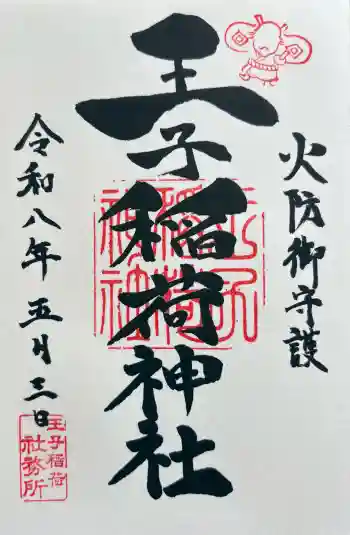 火防御守護
王子稲荷神社
王子稲荷神社
令和八年五月三日
王子稲荷
社務所